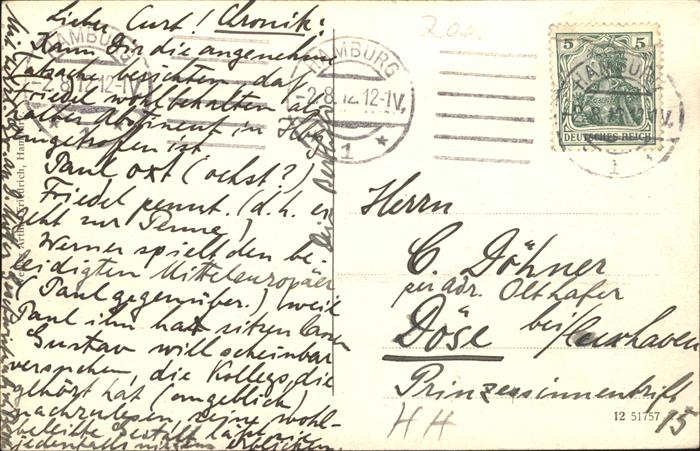 Lieber Curt! Chronik:
Kann Dir die angenehme
Tatsache berichten, daß
Friedel wohlbehalten als
alter Abstinent in Hbg
eingetroffen ist
Paul oxt (ochst?)
Friedel pennt. (d.h. er
geht zur Penne)
Werner spielt den be-
leidigten Mitteleuropäer
(Paul gegenüber.) weil
Paul ihn hat sitzen lassen
Gustav will scheinbar
versuchen, die Kollegs, die
gehört hat (angeblich)
nachzulesen, seine wohl-
beleibte Gestalt
jedenfalls erblicken.
HAMBURG
-2.8.12.12-1V.
1
HAMBURG
-2.8.12.12-1V.
1
200
5 5
DEUTSCHES REICH
HAMBURG
1
Herrn
C. Döhner
per adr. Olthafer
Döse bei Cuxhaven
Prinzessinnentrift
15
HH
12 51757